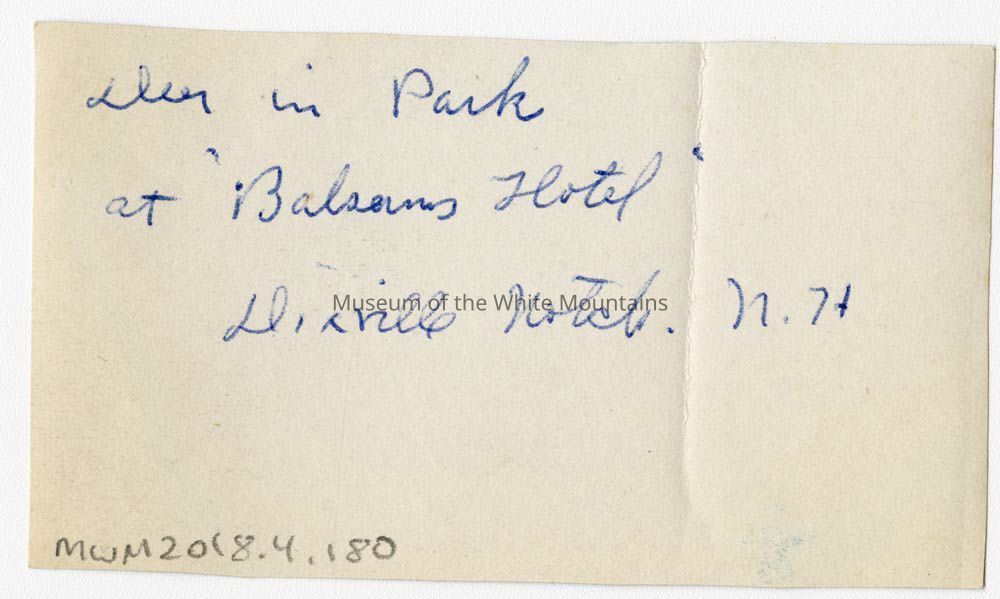 Deer in Park
at "Balsams Hotel"
Dixville Notch. N. H
Museum of the White Mountains
MWM2018.4.180